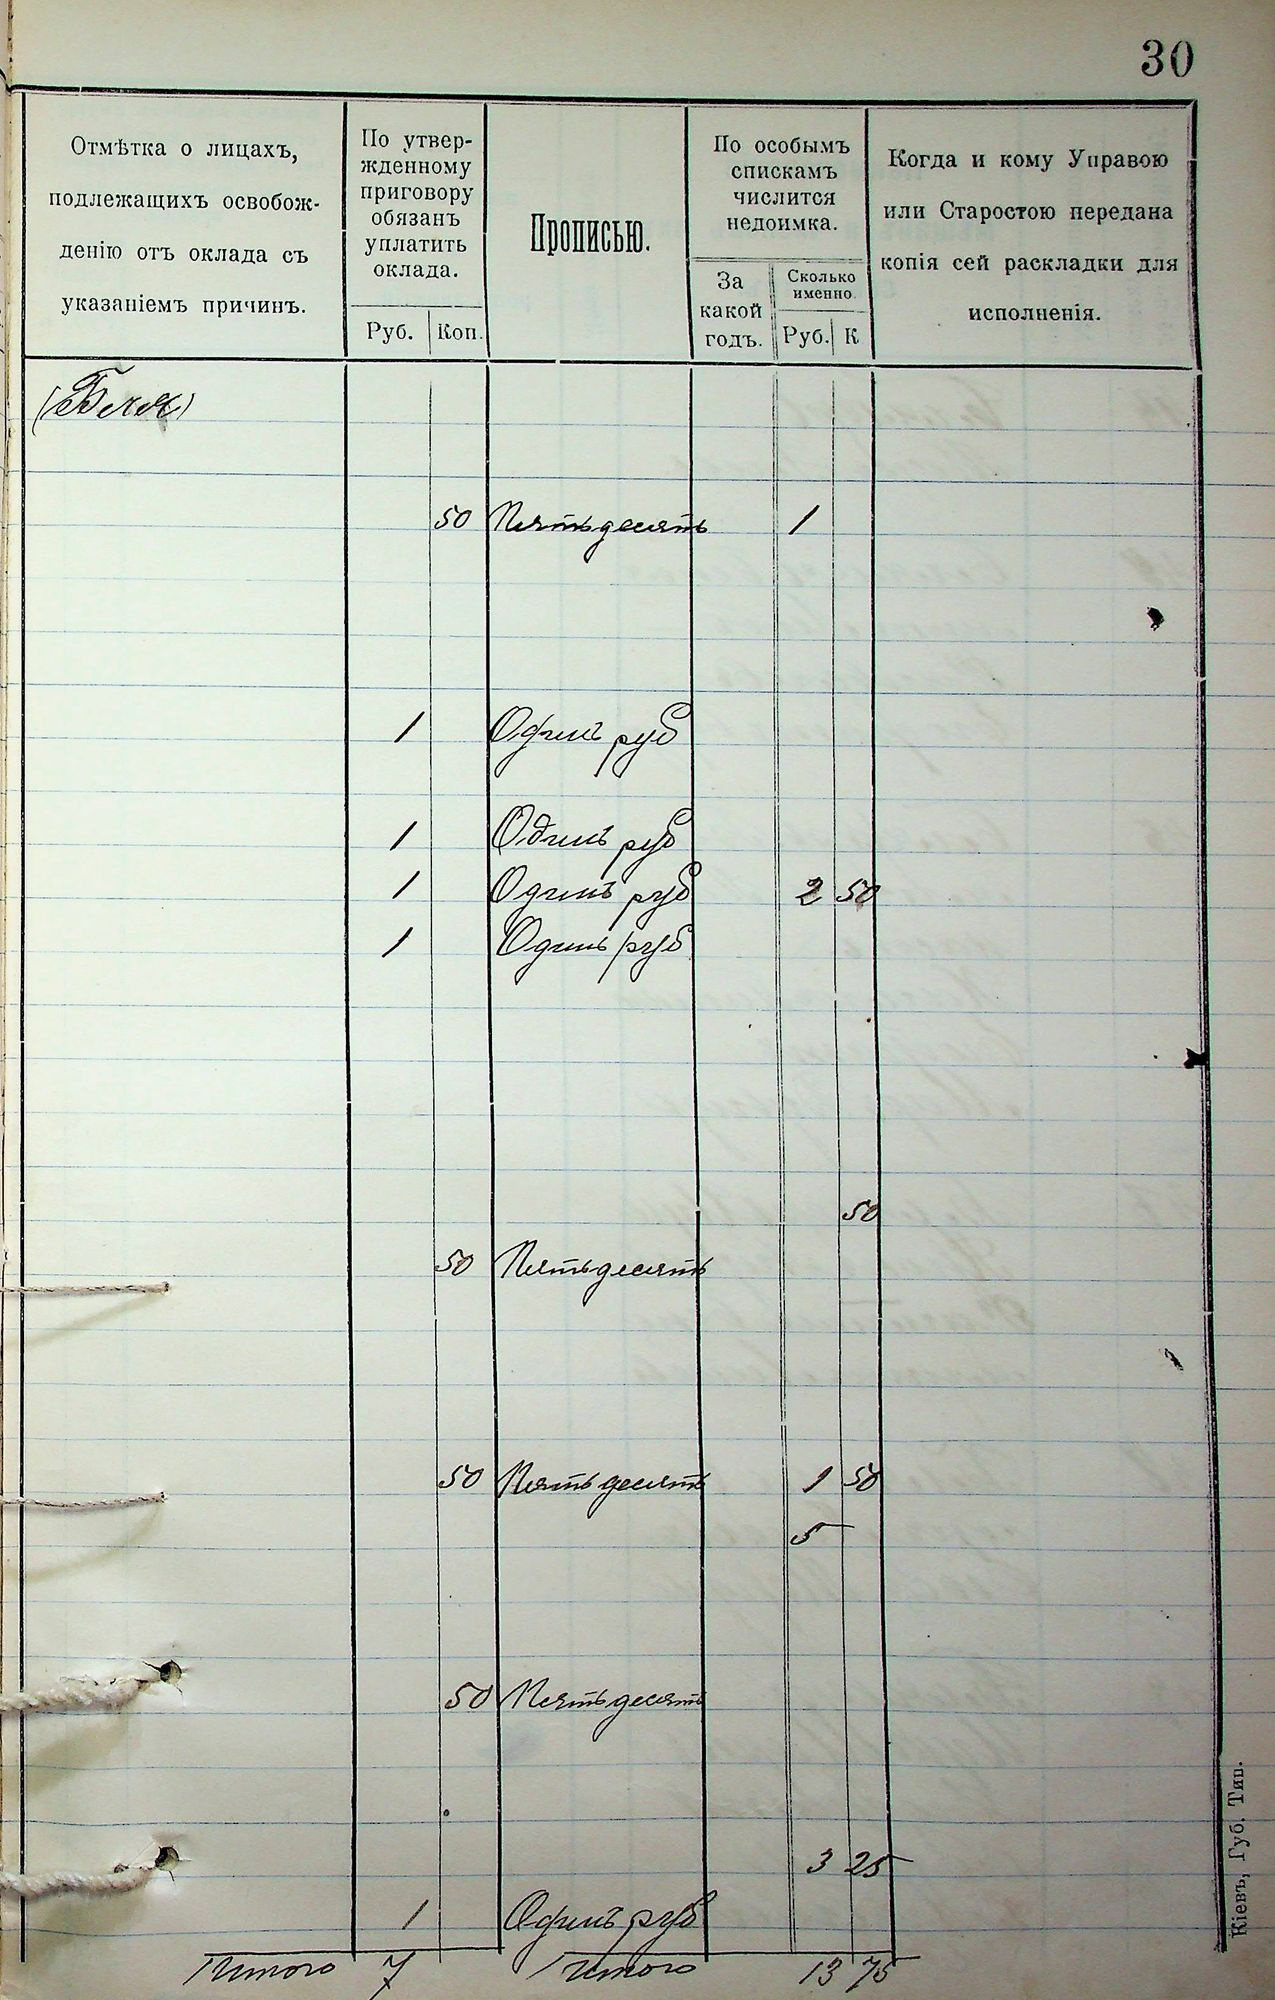 30
Отмѣтка о лицахъ,
подлежащихъ освобож-
денію отъ оклада съ
указаніемъ причинъ.
По утвер-
жденному
приговору
обязанъ
уплатить
оклада.
Руб. Коп.
Прописью.
По особымъ
спискамъ
числится
недоимка.
За
какой
годъ.
Сколько
именно
Руб. К
Когда и кому Управою
или Старостою передана
копія сей раскладки для
исполненія.
50 Пятьдесять 1
1 Одинъ руб
1 Одинъ руб
1 Одинъ руб 2 50
1 Одинъ руб
50
50 Пятьдесять
50 Пятьдесять 1 50
5
50 Пятьдесять
3 25
1 Одинъ руб
Итого 7 Итого 13 75
Кіевъ, Губ. Тип.